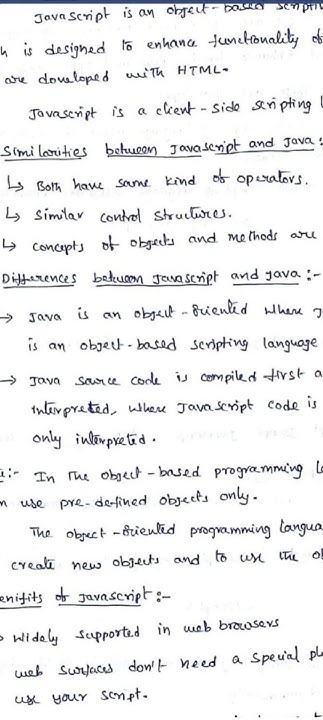 Javascript is an object-based scriptin
h is designed to enhance functionality of
are doveloped with HTML.
Javascript is a client-side scripting l
Similarities between Javascript and Java :
↳ Both have same kind of operators.
↳ Similar control structures.
↳ concepts of objects and methods are
Differences between Javascript and Java :-
→ Java is an object-oriented where J
is an object-based scripting language
→ Java source code is compiled first a
interpreted, where Javascript code is
only interpreted.
:- In the object-based programming l
n use pre-defined objects only.
The object-oriented programming langua
create new objects and to use the o
enifits of Javascript :-
widely supported in web browsers
web surfaces don't need a special pl
use your script.